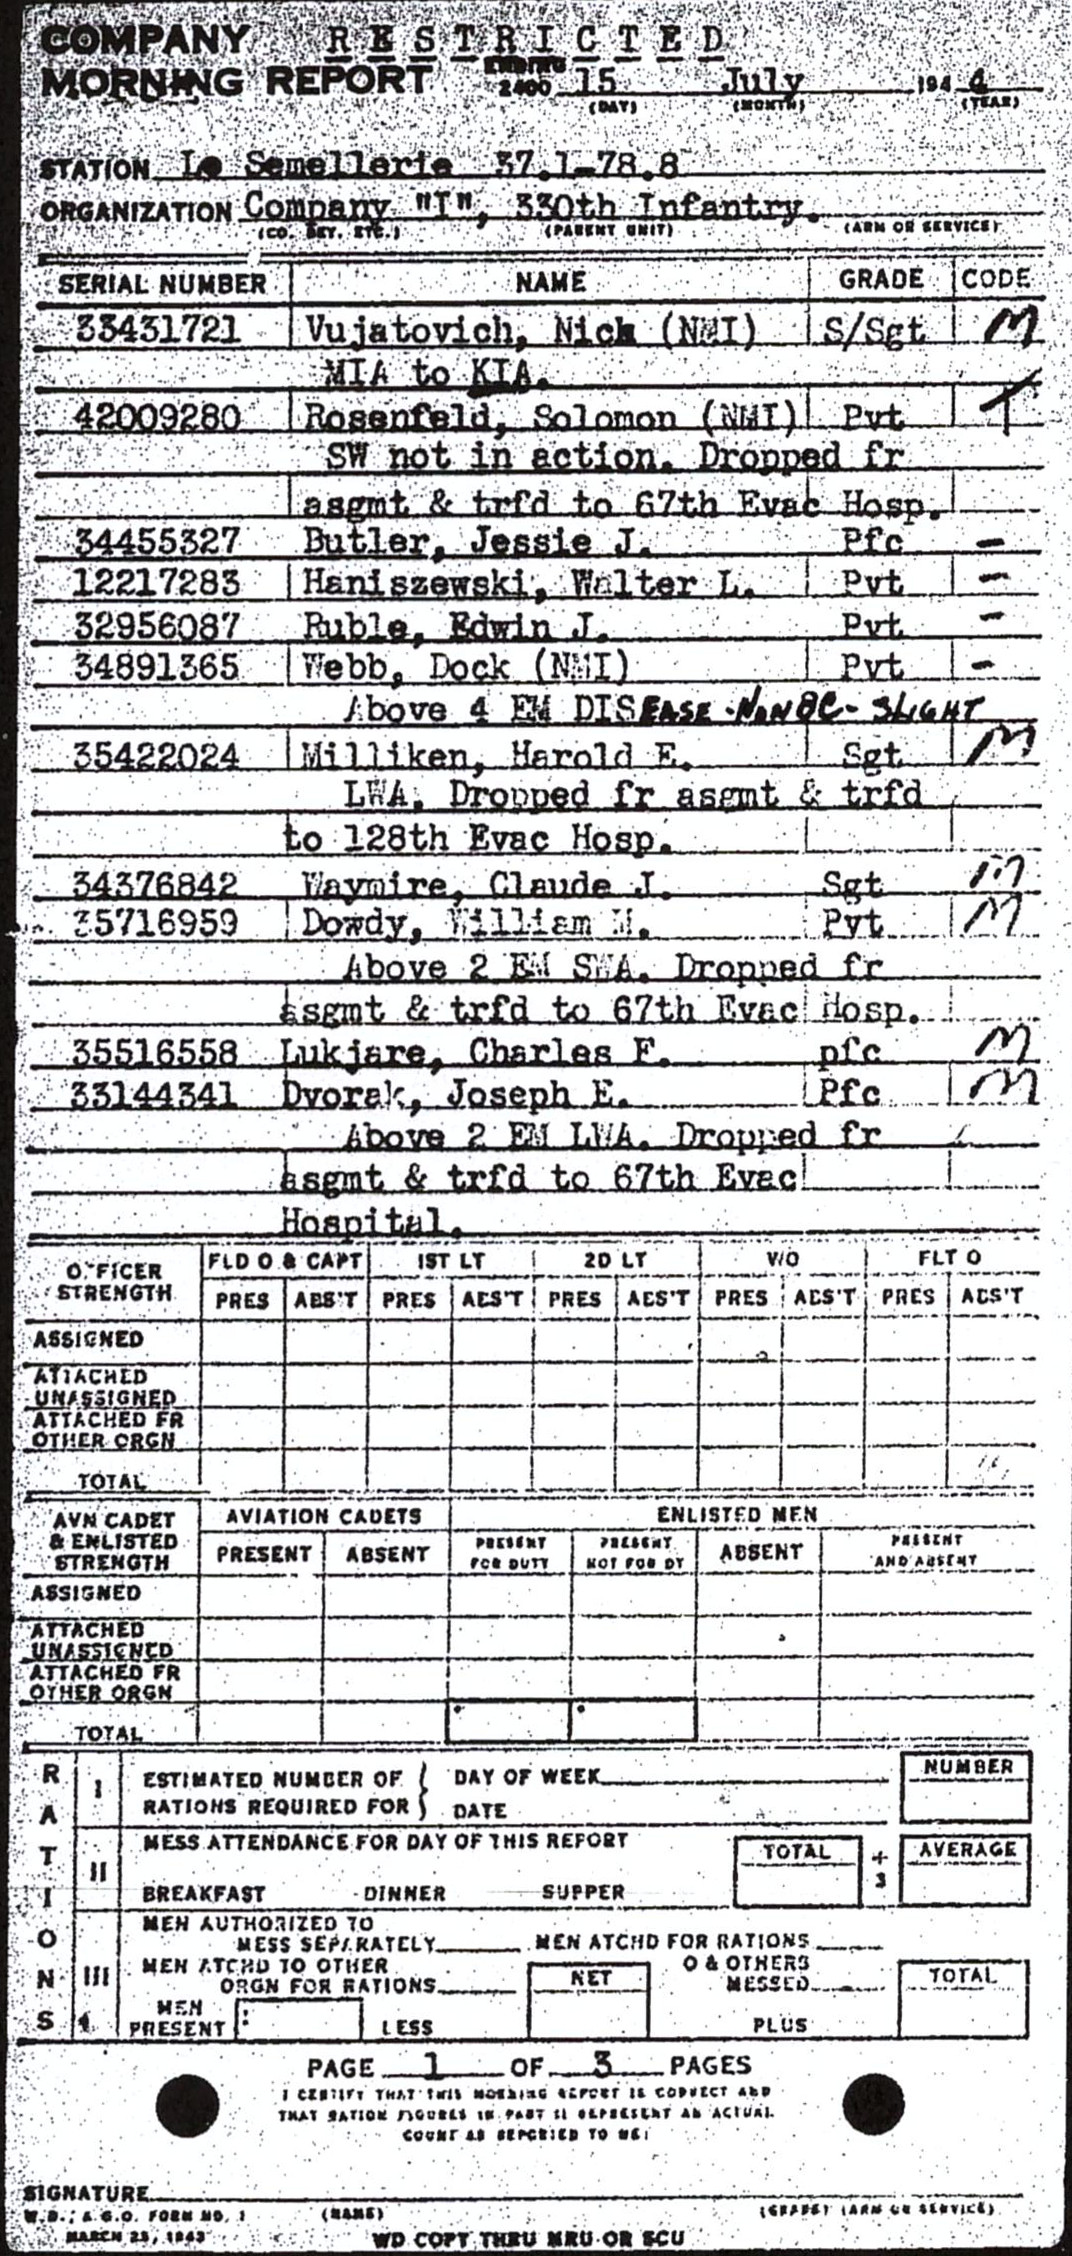 COMPANY RESTRICTED
MORNING REPORT ENDING 2400 15 July 1944
(DAY) (MONTH) (YEAR)
STATION Le Semellerie 37.1-78.8
ORGANIZATION Company "I", 330th Infantry.
(CO. DET. ETC.) (PARENT UNIT) (ARM OR SERVICE)
SERIAL NUMBER NAME GRADE CODE
33431721 Vujatovich, Nick (NMI) S/Sgt M
MIA to KIA.
42009280 Rosenfeld, Solomon (NMI) Pvt T
SW not in action. Dropped fr
asgmt & trfd to 67th Evac Hosp.
34455327 Butler, Jessie J. Pfc -
12217283 Haniszewski, Walter L. Pvt -
32956087 Ruble, Edwin J. Pvt -
34891365 Webb, Dock (NMI) Pvt -
Above 4 EM DISEASE-NONBC-SLIGHT
35422024 Milliken, Harold E. Sgt M
LWA. Dropped fr asgmt & trfd
to 128th Evac Hosp.
34376842 Waymire, Claude J. Sgt M
35716959 Dowdy, William M. Pvt M
Above 2 EM SWA. Dropped fr
asgmt & trfd to 67th Evac Hosp.
35516558 Lukjare, Charles F. pfc M
33144341 Dvorak, Joseph E. Pfc M
Above 2 EM LWA. Dropped fr
asgmt & trfd to 67th Evac
Hospital.
OFFICER STRENGTH FLD O & CAPT 1ST LT 2D LT W/O FLT O
PRES ABS'T PRES ABS'T PRES ABS'T PRES ABS'T PRES ABS'T
ASSIGNED
ATTACHED
UNASSIGNED
ATTACHED FR
OTHER ORGN
TOTAL
AVN CADET & ENLISTED STRENGTH AVIATION CADETS ENLISTED MEN
PRESENT ABSENT PRESENT FOR DUTY PRESENT NOT FOR DY ABSENT PRESENT AND ABSENT
ASSIGNED
ATTACHED
UNASSIGNED
ATTACHED FR
OTHER ORGN
TOTAL
RATIONS
I ESTIMATED NUMBER OF RATIONS REQUIRED FOR { DAY OF WEEK DATE NUMBER
II MESS ATTENDANCE FOR DAY OF THIS REPORT TOTAL ÷ 3 AVERAGE
BREAKFAST DINNER SUPPER
III MEN AUTHORIZED TO
MESS SEPARATELY MEN ATCHD FOR RATIONS
MEN ATCHD TO OTHER
ORGN FOR RATIONS NET O & OTHERS MESSED TOTAL
MEN PRESENT LESS PLUS
PAGE 1 OF 3 PAGES
I CERTIFY THAT THIS MORNING REPORT IS CORRECT AND
THAT RATION FIGURES IN PART II REPRESENT AN ACTUAL
COUNT AS REPORTED TO ME:
SIGNATURE
(NAME) (GRADE) (ARM OR SERVICE)
W.D., A.G.O. FORM NO. 1
MARCH 25, 1943 WD COPY THRU MRU OR SCU